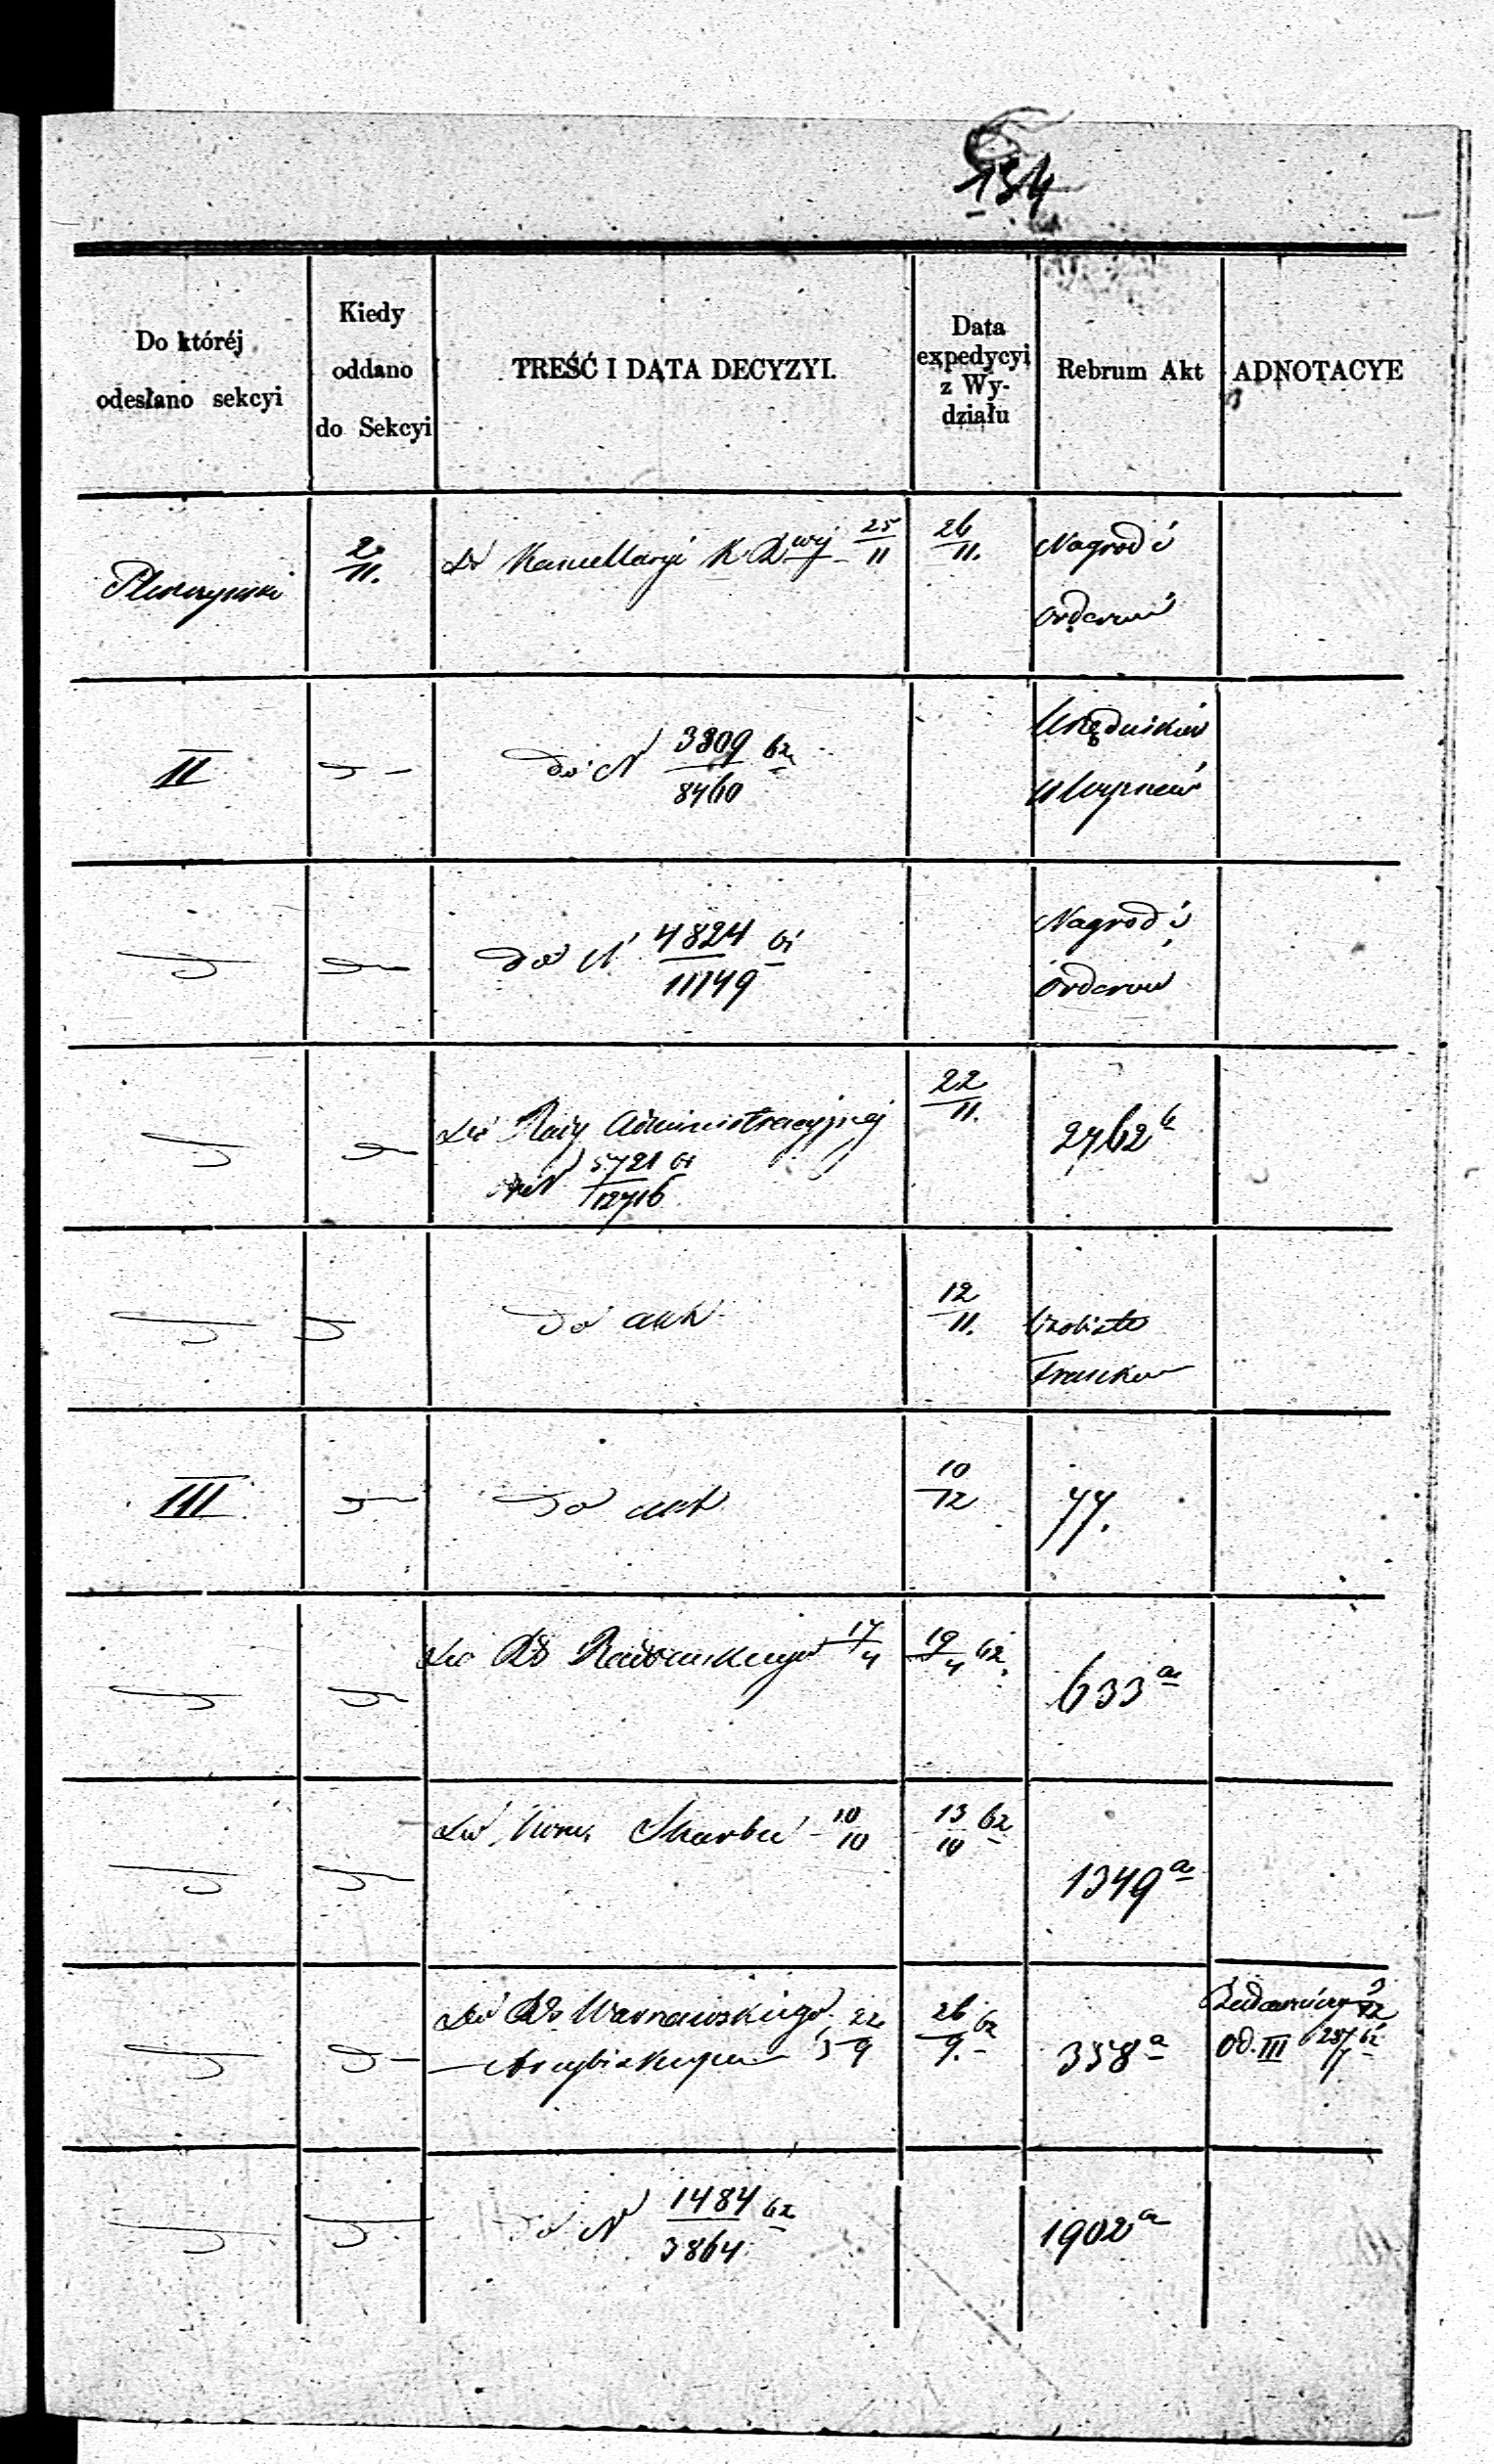 134
Do któréj
odesłano sekcyi
Kiedy
oddano
do Sekcyi
TREŚĆ I DATA DECYZYI.
Data
expedycyi
z Wy-
działu
Rebrum Akt
ADNOTACYE
2/11.
Do Kancellaryi K. R. 25/11
26/11.
Nagrod i
orderów
II
do N 3809/8460 62
Urzędników
do N 4824/11149 61
Nagrod i
Orderów
Do Rady Administracyjnej
N 5721/12716 61
22/11.
2762
do akt
12/11.
III
do akt
10/12
77.
Do Rd Radomskiego 17/4
19/4 62.
633 a
Do Kom. Skarbu 10/10
13/10 62
1349 a
Do Rd Warszawskiego 22/9
Arcybiskupa
26/9. 62
358 a
od. III
do N 1484/3864 62
1902 a